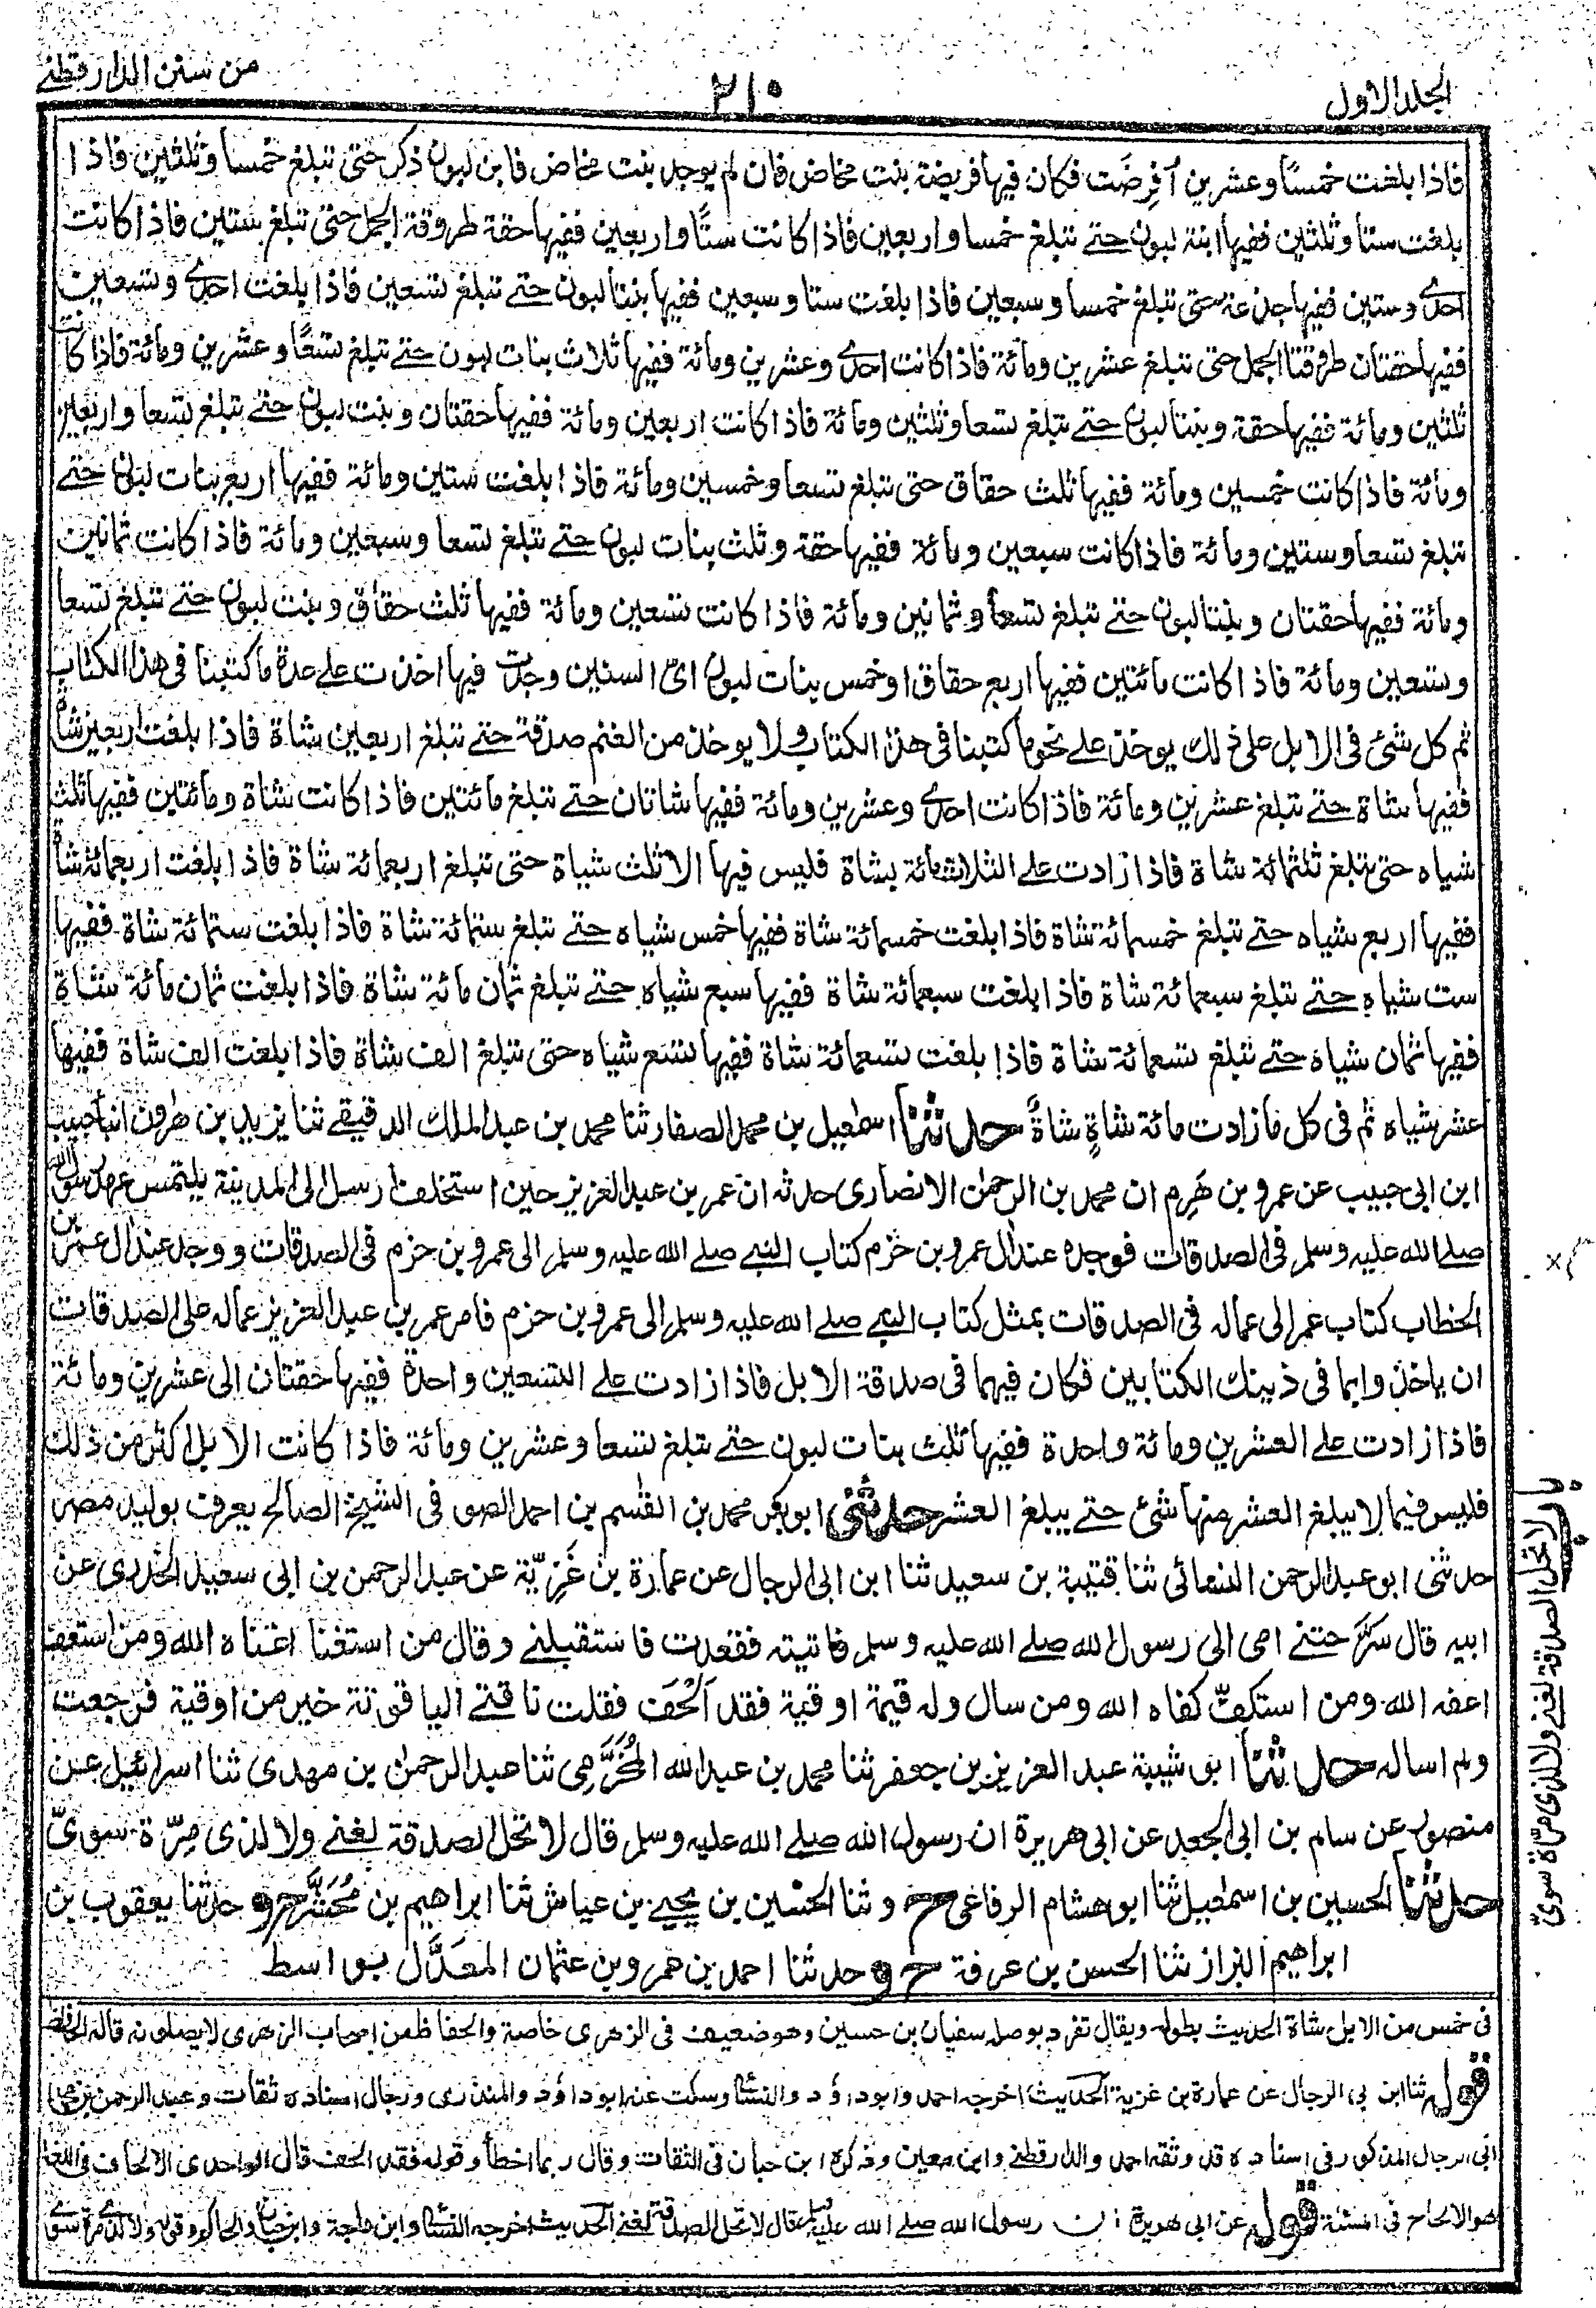 الجلد الاول
٢١٠
من سنن الدارقطنے
فاذا بلغت خمسًا وعشرين اُفرِضَت فكان فيها فريضة بنت مخاض فان لم يوجد بنت مخاض فابن لبون ذكر حتى تبلغ خمسا وثلثين فاذا
بلغت ستا وثلثين ففيها ابنة لبون حتے تبلغ خمسا واربعين فاذا كانت ستًّا واربعين ففيها حقة طروقة الجمل حتى تبلغ ستين فاذا كانت
احدے وستين ففيها جذعة حتى تبلغ خمسا وسبعين فاذا بلغت ستا وسبعين ففيها بنتا لبون حتے تبلغ تسعين فاذا بلغت احدے وتسعين
ففيها حقتان طروقتا الجمل حتى تبلغ عشرين ومائة فاذا كانت احدے وعشرين ومائة ففيها ثلاث بنات لبون حتے تبلغ تسعًا وعشرين ومائة فاذا كانت
ثلثين ومائة ففيها حقة وبنتا لبون حتے تبلغ تسعا وثلثين ومائة فاذا كانت اربعين ومائة ففيها حقتان وبنت لبون حتے تبلغ تسعا واربعين
ومائة فاذا كانت خمسين ومائة ففيها ثلث حقاق حتى تبلغ تسعا وخمسين ومائة فاذا بلغت ستين ومائة ففيها اربع بنات لبون حتے
تبلغ تسعا وستين ومائة فاذا كانت سبعين ومائة ففيها حقة وثلث بنات لبون حتے تبلغ تسعا وسبعين ومائة فاذا كانت ثمانين
ومائة ففيها حقتان وبنتا لبون حتے تبلغ تسعا وثمانين ومائة فاذا كانت تسعين ومائة ففيها ثلث حقاق وبنت لبون حتے تبلغ تسعا
وتسعين ومائة فاذا كانت مائتين ففيها اربع حقاق اوخمس بنات لبون اىّ السنين وجدت فيها اخذت على عدة ما كتبنا فى هذا الكتاب
ثم كل شئ فى الابل على ذلك يوخذ على نحو ما كتبنا فى هذا الكتاب ولا يوخذ من الغنم صدقة حتے تبلغ اربعين شاة فاذا بلغت اربعين شاة
ففيها شاة حتے تبلغ عشرين ومائة فاذا كانت احدے وعشرين ومائة ففيها شاتان حتے تبلغ مائتين فاذا كانت شاة ومائتين ففيها ثلث
شياه حتى تبلغ ثلثمائة شاة فاذا زادت على الثلاثمائة بشاة فليس فيها الا ثلث شياة حتى تبلغ اربعمائة شاة فاذا بلغت اربعمائة شاة
ففيها اربع شياه حتے تبلغ خمسمائة شاة فاذا بلغت خمسمائة شاة ففيها خمس شياه حتے تبلغ ستمائة شاة فاذا بلغت ستمائة شاة ففيها
ست شياه حتے تبلغ سبعمائة شاة فاذا بلغت سبعمائة شاة ففيها سبع شياه حتے تبلغ ثمان مائة شاة فاذا بلغت ثمان مائة شاة
ففيها ثمان شياه حتے تبلغ تسعمائة شاة فاذا بلغت تسعمائة شاة ففيها تسع شياه حتى تبلغ الف شاة فاذا بلغت الف شاة ففيها
عشر شياه ثم فى كل ما زادت مائة شاةٍ شاةٌ حدثنا اسمعيل بن محمد الصفار ثنا محمد بن عبد الملك الدقيقے ثنا يزيد بن هٰرون انبأ حبيب
ابن ابى حبيب عن عمرو بن هَرِم ان محمد بن الرحمٰن الانصارى حدثه ان عمر بن عبد العزيز حين استخلف ارسل الى المدينة يلتمس عهد رسول الله
صلے الله عليه وسلم فى الصدقات فوجده عند اٰل عمرو بن حزم كتاب النبے صلے الله عليه وسلم الى عمرو بن حزم فى الصدقات ووجد عند اٰل عمر بن
الخطاب كتاب عمر الى عماله فى الصدقات بمثل كتاب النبے صلے الله عليه وسلم الى عمرو بن حزم فامر عمر بن عبد العزيز عماله على الصدقات
ان ياخذوا بما فى ذينك الكتابين فكان فيهما فى صدقة الابل فاذا زادت على التسعين واحدة ففيها حقتان الى عشرين ومائة
فاذا زادت على العشرين ومائة واحدة ففيها ثلث بنات لبون حتے تبلغ تسعا وعشرين ومائة فاذا كانت الابل اكثر من ذلك
فليس فيما لا يبلغ العشر منها شئ حتے يبلغ العشر حدثنى ابوبكر محمد بن القٰسم بن احمد الصوفى الشيخ الصالح يعرف بوليد مصر
حدثنى ابو عبد الرحمن النسائى ثنا قتيبة بن سعيد ثنا ابن ابى الرجال عن عمارة بن غَزِيّة عن عبد الرحمن بن ابى سعيد الخدرى عن
ابيه قال سَرَّحتنے امى الى رسول الله صلے الله عليه وسلم فاتيته فقعدت فاستقبلنے وقال من استغنا اغناه الله ومن استعف
اعفه الله ومن استكفّ كفاه الله ومن سال وله قيمة اوقية فقد اَلْحَف فقلت ناقتے الياقوتة خير من اوقية فرجعت
ولم اساله حدثنا ابو شيبة عبد العزيز بن جعفر ثنا محمد بن عبد الله المُخَرَّمِى ثنا عبد الرحمٰن بن مهدى ثنا اسرائيل عن
منصور عن سالم بن ابى الجعد عن ابى هريرة ان رسول الله صلے الله عليه وسلم قال لا تحل الصدقة لغنے ولا لذى مِرّة سوىّ
حدثنا الحسين بن اسمٰعيل ثنا ابو هشام الرفاعى ح وثنا الحسين بن يحيے بن عياش ثنا ابراهيم بن مُحَشَّر ح وحدثنا يعقوب بن
ابراهيم البزاز ثنا الحسن بن عرفة ح وحدثنا احمد بن عمرو بن عثمان المعَدَّل بواسط
باب لا تحل الصدقة لغنے ولا لذى مرّة سوىّ
فى خمس من الابل شاة الحديث بطوله ويقال تفرد بوصله سفيان بن حسين وهو ضعيف فى الزهرى خاصة والحفاظ من اصحاب الزهرى لا يصلونه قاله الحافظ
قوله ثنا ابن ابى الرجال عن عمارة بن غزية الحديث اخرجه احمد وابو داؤد والنسائے وسكت عنه ابو داؤد والمنذرى ورجال اسناده ثقات وعبد الرحمن بن محمد
ابى الرجال المذكور فى اسناده قد وثقه احمد والدارقطنے وابن معين وذكره ابن حبان فى الثقات وقال ربما اخطأ وقوله فقد الحف قال الواحدى الالحاف فى اللغة
هو الالحاح فى المسئلة قوله عن ابى هريرة ان رسول الله صلے الله عليه وسلم قال لا تحل الصدقة لغنے الحديث اخرجه النسائے وابن ماجة وابن حبان والحاكم وقوله ولا لذى مرة سوے